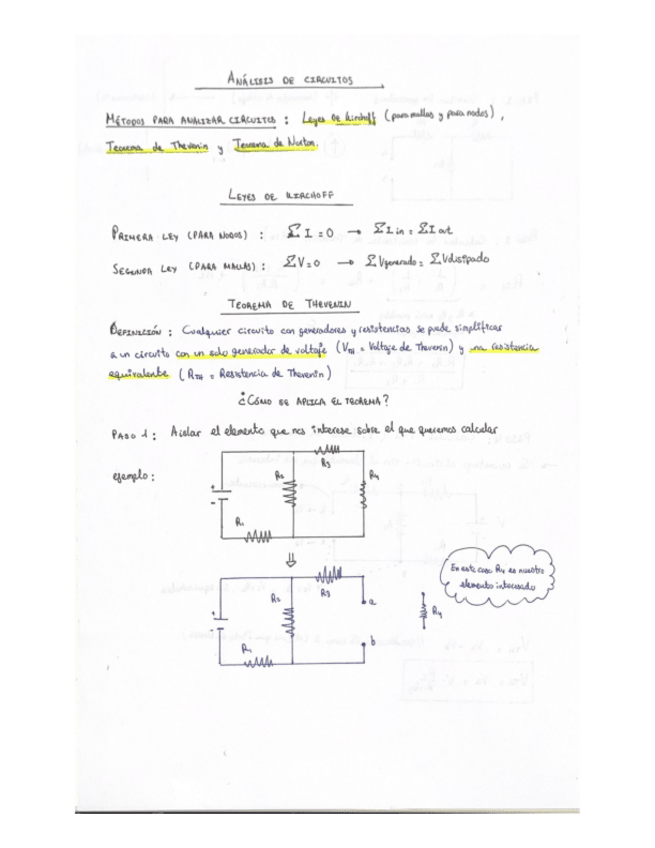 ANÁLISIS DE CIRCUITOS
MÉTODOS PARA ANALIZAR CIRCUITOS : Leyes de Kirchoff (para mallas y para nodos),
Teorema de Thevenin y Teorema de Norton.
LEYES DE KIRCHOFF
PRIMERA LEY (PARA NODOS) : ΣI = 0 → ΣI in = ΣI out
SEGUNDA LEY (PARA MALLAS) : ΣV = 0 → ΣVgenerado = ΣVdisipado
TEOREMA DE THEVENIN
DEFINICIÓN : Cualquier circuito con generadores y resistencias se puede simplificar
a un circuito con un solo generador de voltaje (VTH = Voltaje de Thevenin) y una resistencia
equivalente (RTH = Resistencia de Thevenin)
¿CÓMO SE APLICA EL TEOREMA?
PASO 1 : Aislar el elemento que nos interese sobre el que queremos calcular
ejemplo :
R3
R2
R4
+
-
R1
En este caso R4 es nuestro
elemento interesado
R2
R3
a
R4
+
-
R1
b